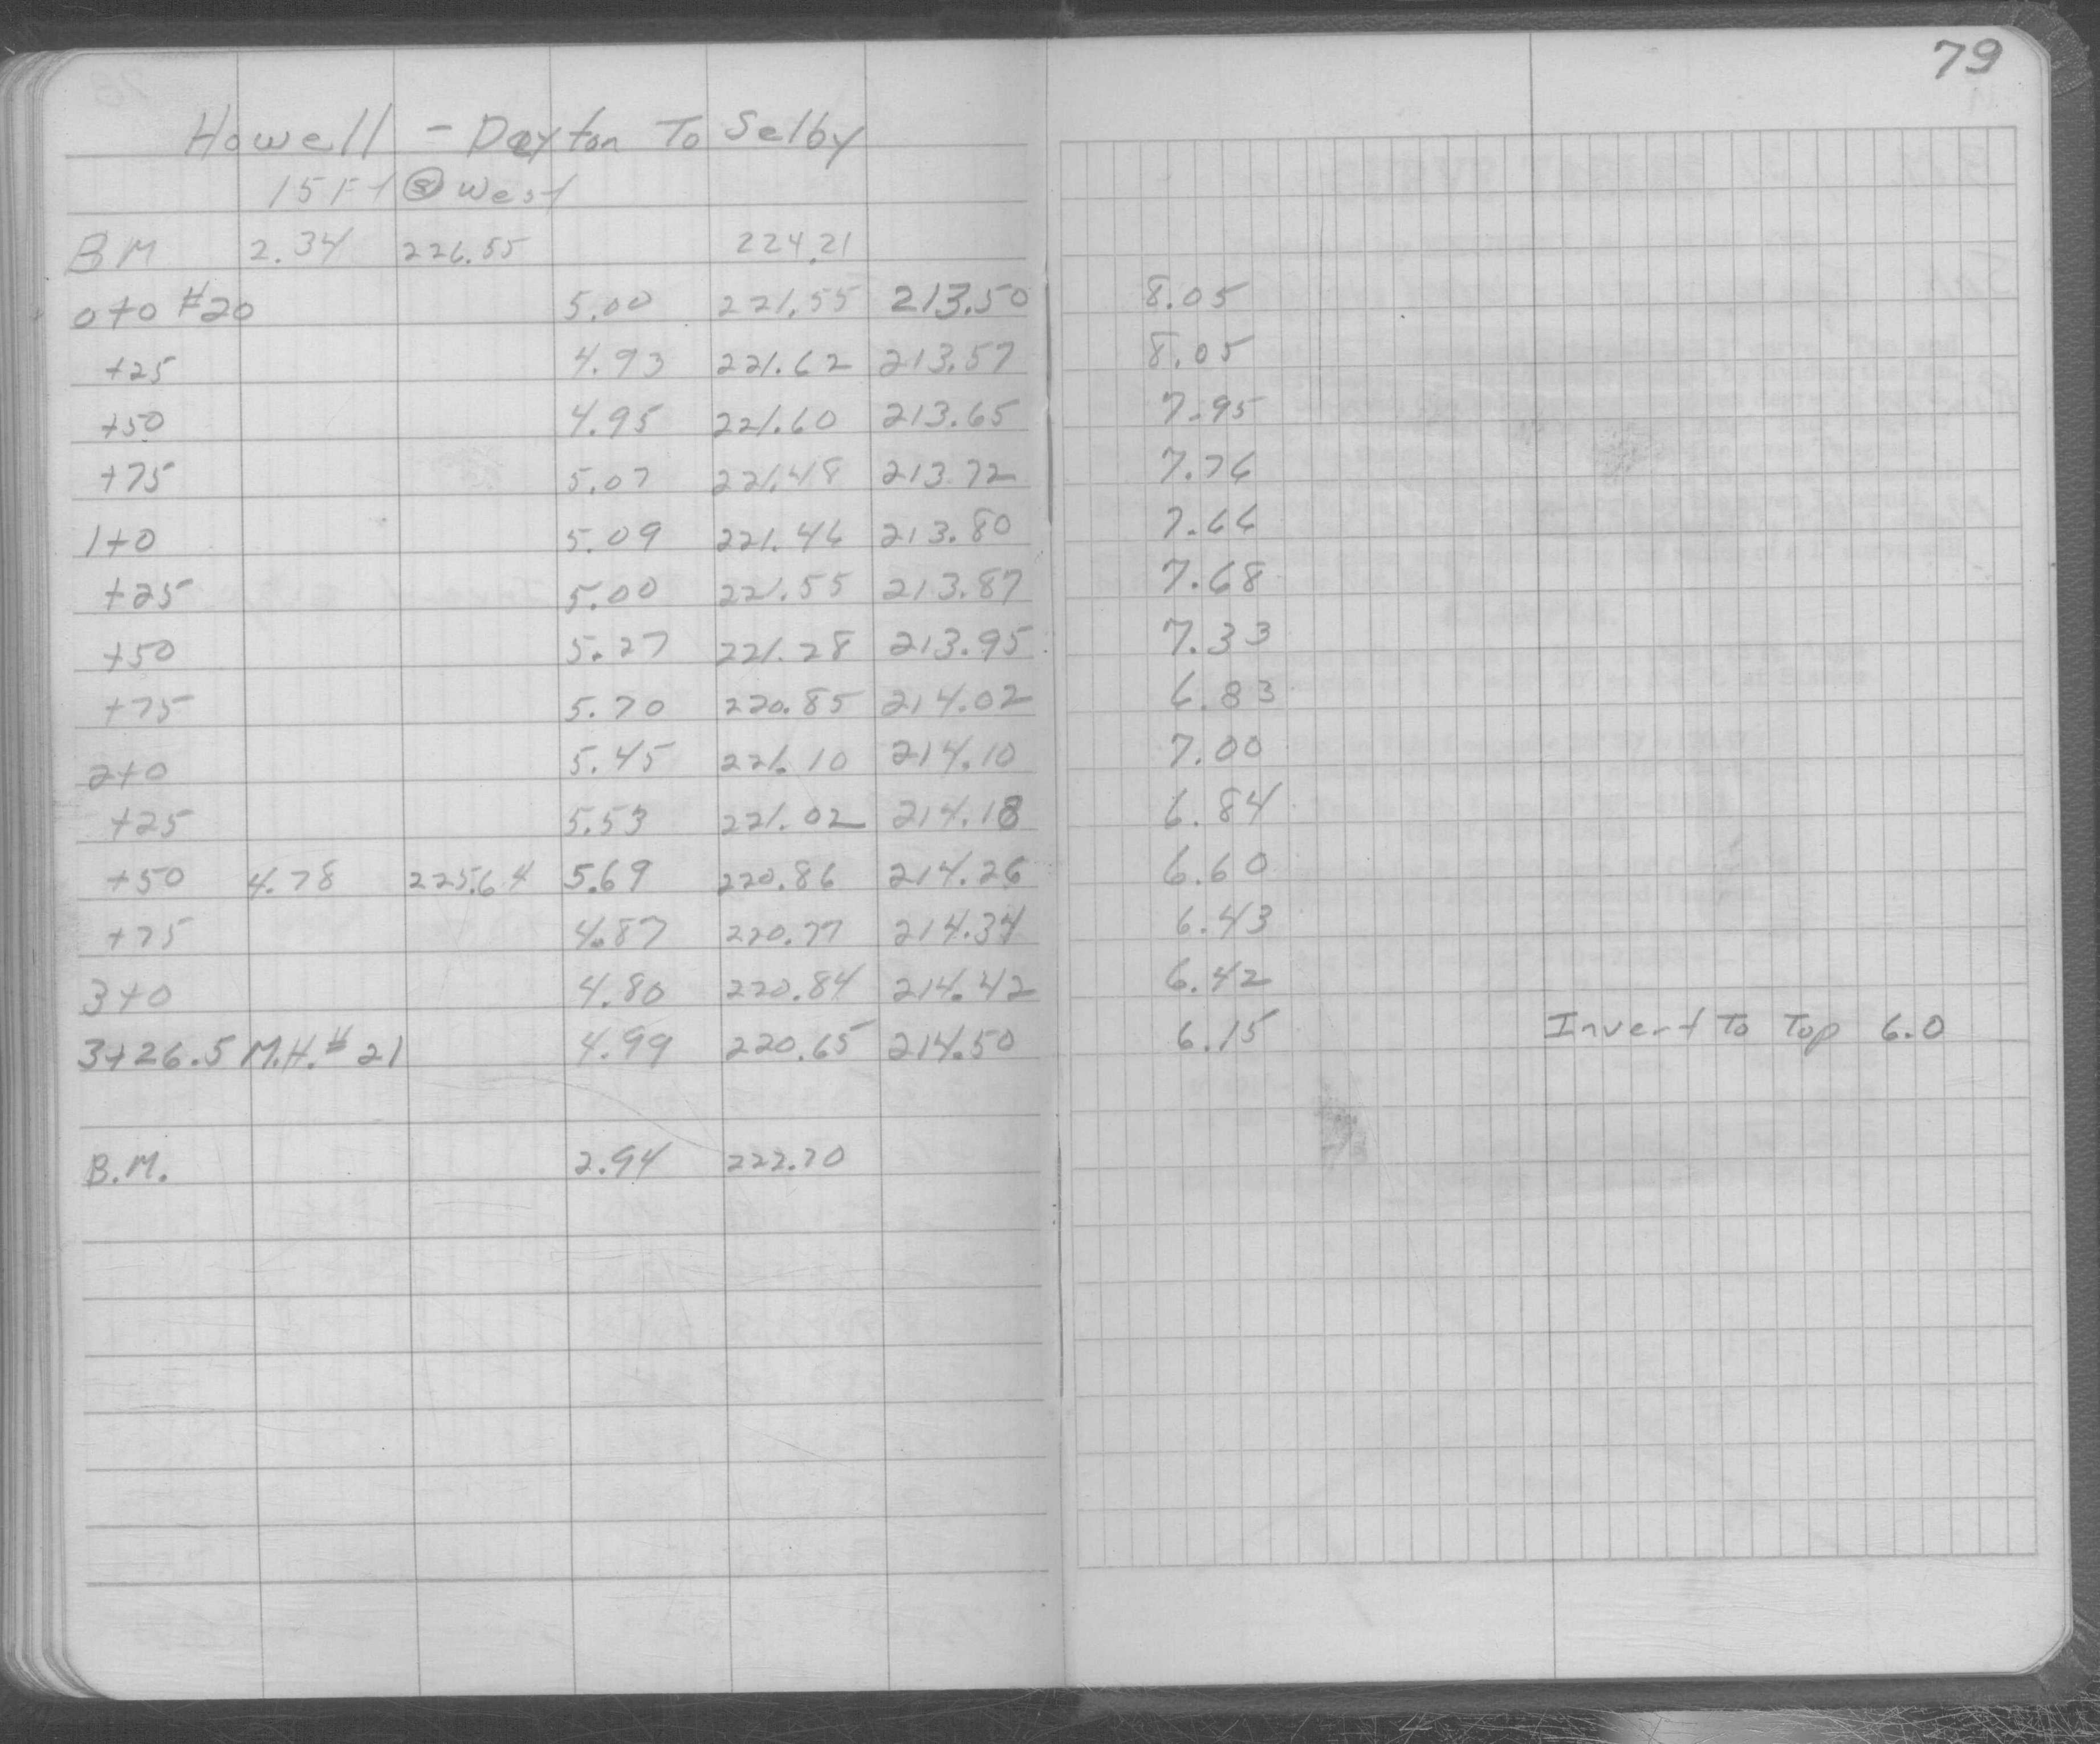 79
Howell - Dayton To Selby
15 Ft Ⓢ West
BM 2.34 226.55 224.21
0+0 #20 5.00 221.55 213.50 8.05
+25 4.93 221.62 213.57 8.05
+50 4.95 221.60 213.65 7.95
+75 5.07 221.48 213.72 7.76
1+0 5.09 221.46 213.80 7.66
+25 5.00 221.55 213.87 7.68
+50 5.27 221.28 213.95 7.33
+75 5.70 220.85 214.02 6.83
2+0 5.45 221.10 214.10 7.00
+25 5.53 221.02 214.18 6.84
+50 4.78 225.64 5.69 220.86 214.26 6.60
+75 4.87 220.77 214.34 6.43
3+0 4.80 220.84 214.42 6.42
3+26.5 M.H. #21 4.99 220.65 214.50 6.15 Invert To Top 6.0
B.M. 2.94 222.70